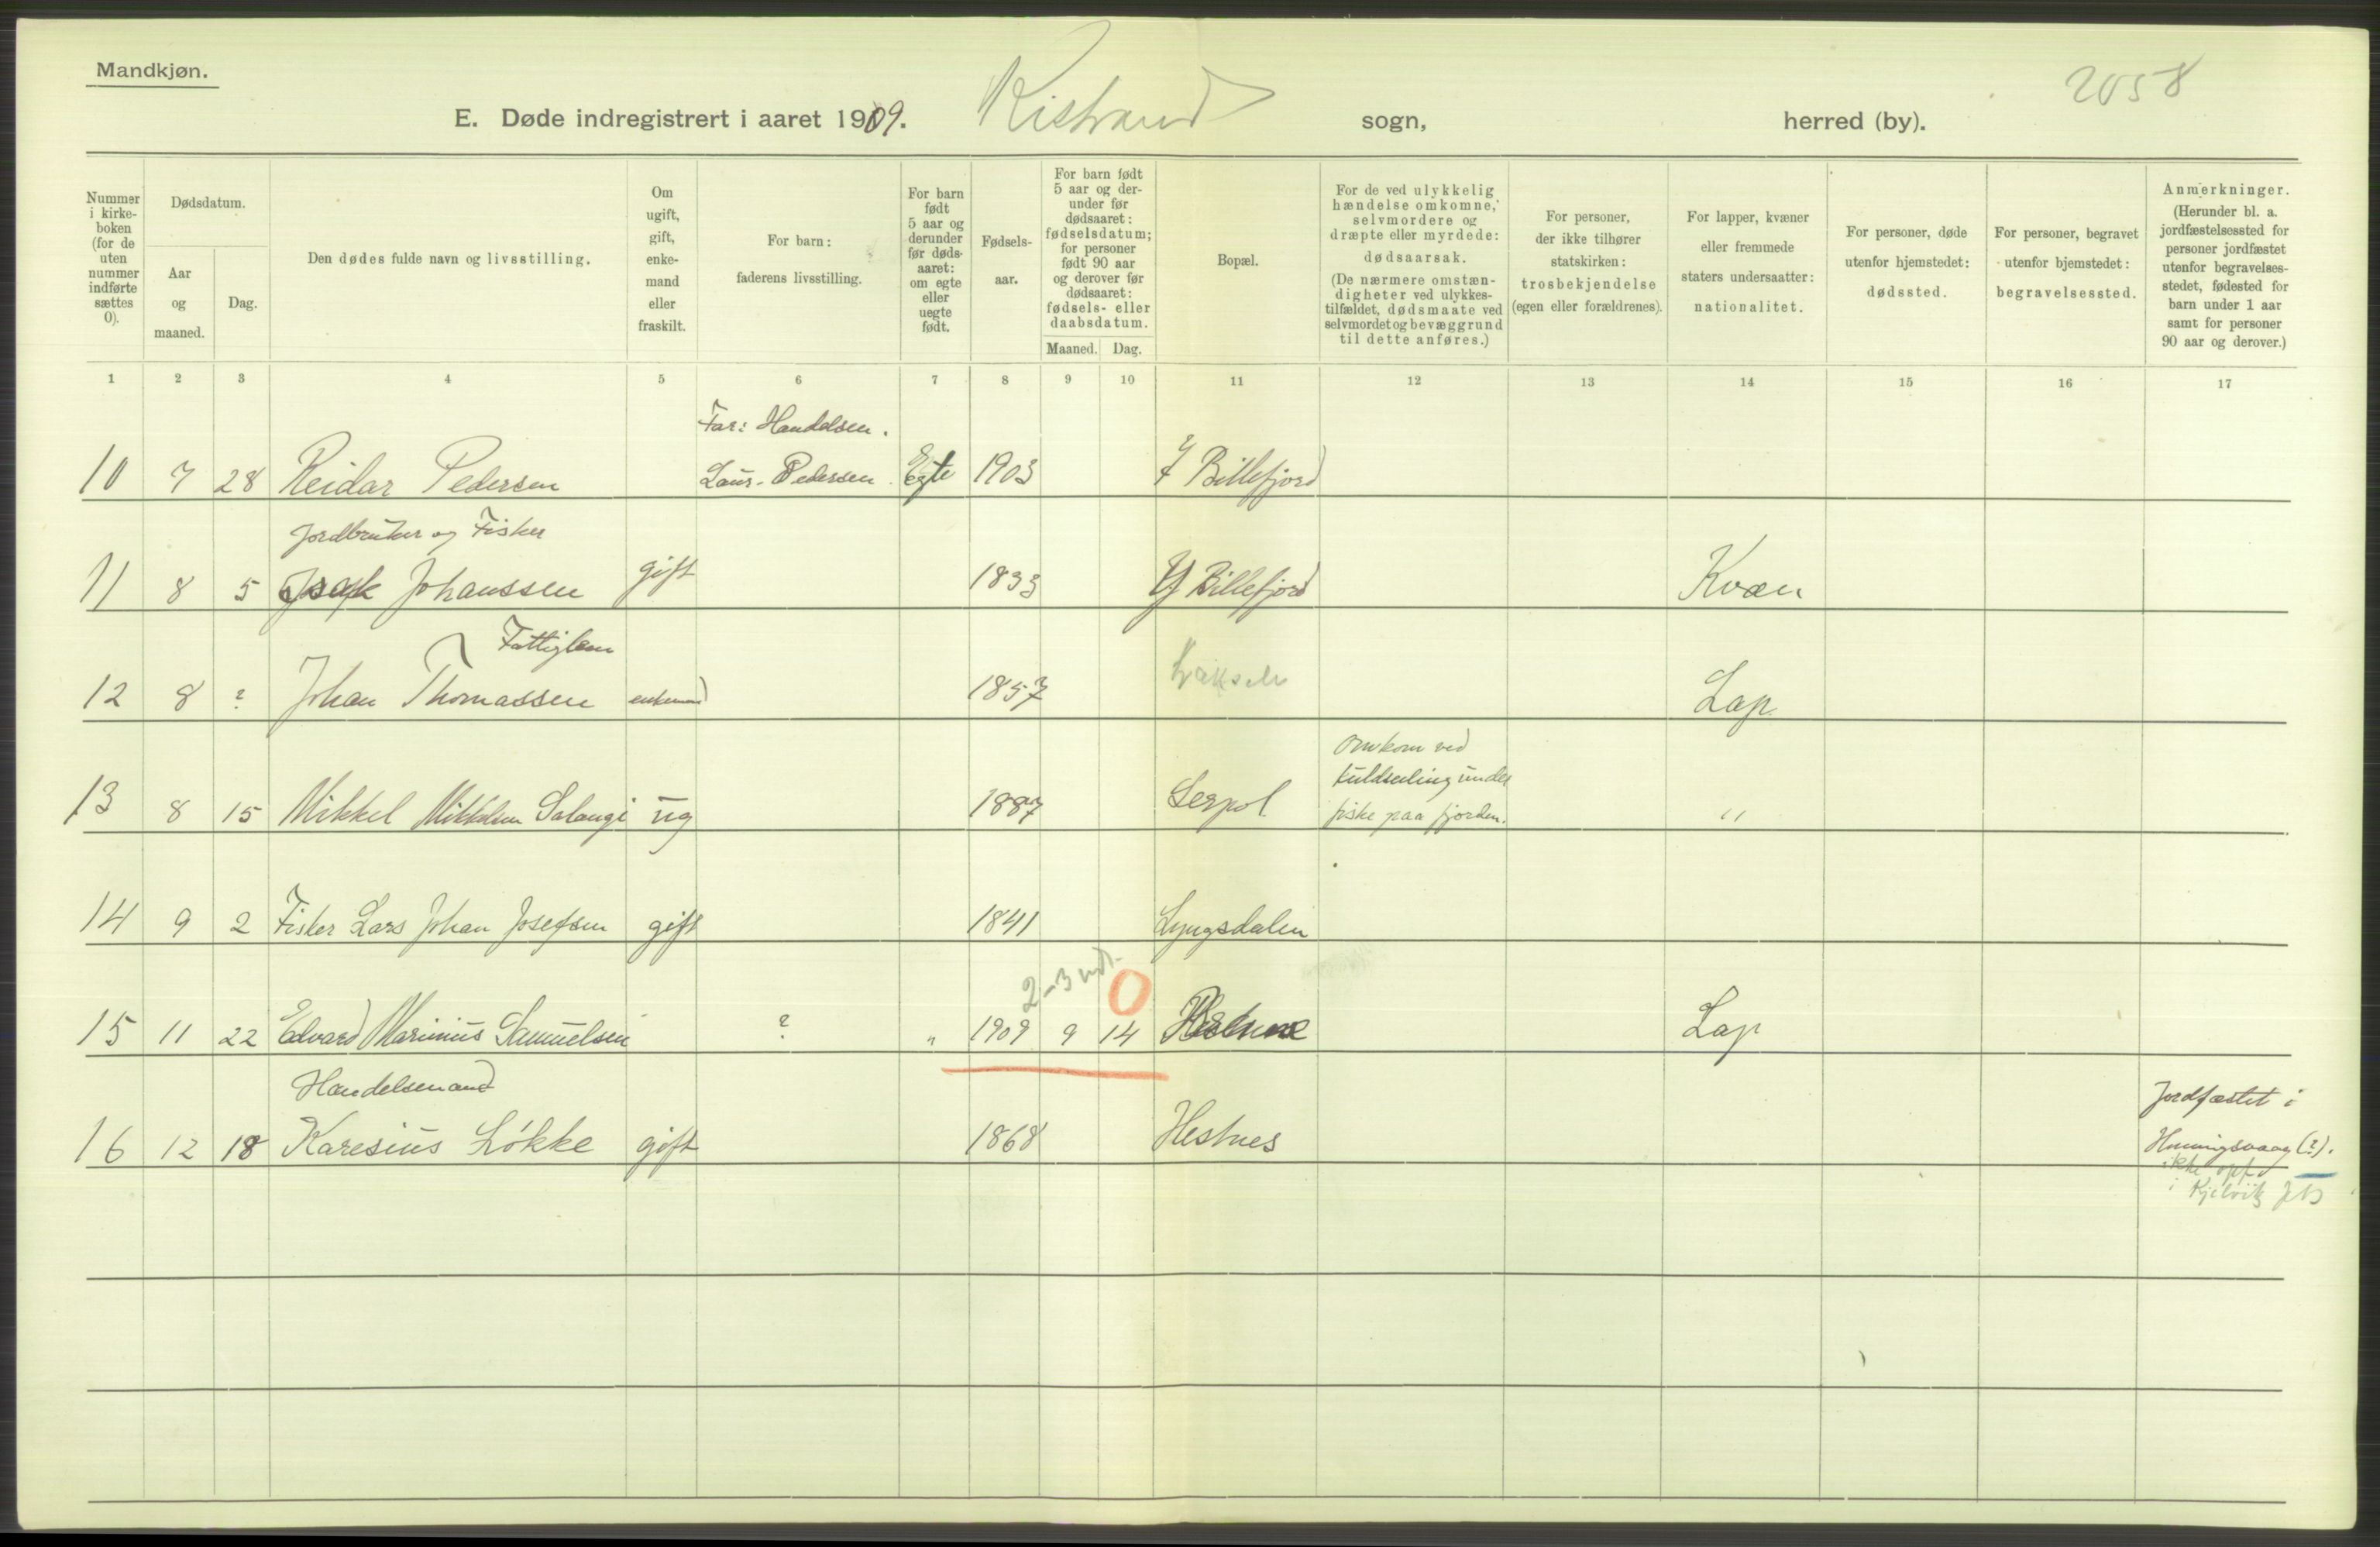 Mandkjøn.
2058
E. Døde indregistrert i aaret 1909. Kistrand sogn, herred (by).
Nummer i kirke-boken (for de uten nummer indførte sættes 0).
Dødsdatum.
Aar og maaned.
Dag.
Den dødes fulde navn og livsstilling.
Om ugift, gift, enke-mand eller fraskilt.
For barn: faderens livsstilling.
For barn født 5 aar og derunder før døds-aaret: om egte eller uegte født.
Fødsels-aar.
For barn født 5 aar og der-under før dødsaaret: fødselsdatum; for personer født 90 aar og derover før dødsaaret: fødsels- eller daabsdatum.
Maaned. Dag.
Bopæl.
For de ved ulykkelig hændelse omkomne, selvmordere og dræpte eller myrdede: dødsaarsak.
(De nærmere omstæn-digheter ved ulykkes-tilfældet, dødsmaate ved selvmordet og bevæggrund til dette anføres.)
For personer, der ikke tilhører statskirken: trosbekjendelse (egen eller forældrenes).
For lapper, kvæner eller fremmede staters undersaatter: nationalitet.
For personer, døde utenfor hjemstedet: dødssted.
For personer, begravet utenfor hjemstedet: begravelsessted.
Anmerkninger.
(Herunder bl. a. jordfæstelsessted for personer jordfæstet utenfor begravelses-stedet, fødested for barn under 1 aar samt for personer 90 aar og derover.)
1 2 3 4 5 6 7 8 9 10 11 12 13 14 15 16 17
Far: Handelsen.
10 7 28 Reidar Pedersen Laur. Pedersen Egte 1903 Y Billefjord
Jordbruker og Fisker
11 8 5 Isak Johanssen gift 1833 Y Billefjord Kvæn
Fattiglem
12 8 ? Johan Thomassen enkemand 1857 Lakselv Lap
Omkom ved
kuldseiling under
13 8 15 Mikkel Mikkelsen Salangi ug 1887 Leirpol fiske paa fjorden. "
14 9 2 Fisker Lars Johan Josefsen gift 1841 Lyngsdalen
2-3 mdr. 0
15 11 22 Edvard Marinius Samuelsen ? " 1909 9 14 Hestnes Lap
Handelsmand
Jordfæstet i
16 12 18 Karesius Løkke gift 1868 Hestnes Honningsvaag (?).
ikke opf.
i Kjelvik